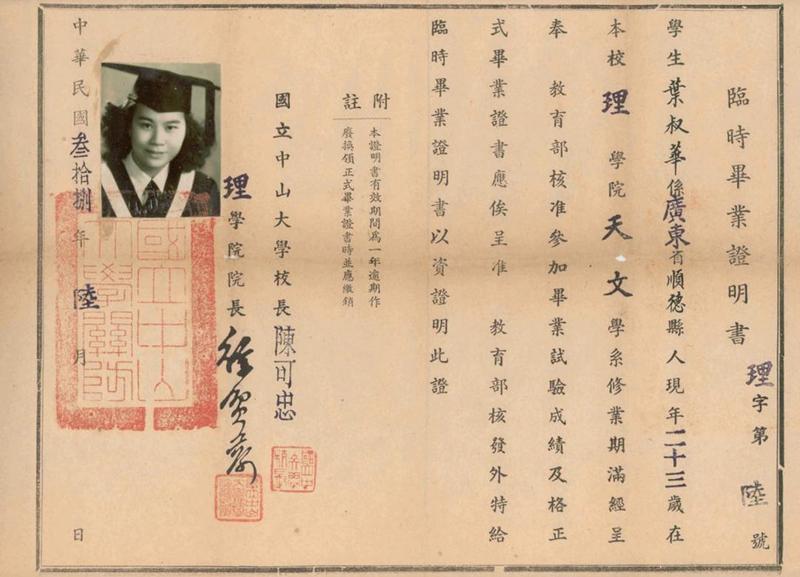 臨時畢業證明書
理字第陸號
學生葉叔華係廣東省順德縣人現年二十三歲在
本校理學院天文學系修業期滿經呈
奉 教育部核准參加畢業試驗成績及格正
式畢業證書應俟呈准 教育部核發外特給
臨時畢業證明書以資證明此證
附註
本證明書有效期間爲一年逾期作
廢換領正式畢業證書時並應繳銷
國立中山大學校長陳可忠
理學院院長
中華民國叁拾捌年陸月 日
國立中山
大學關防